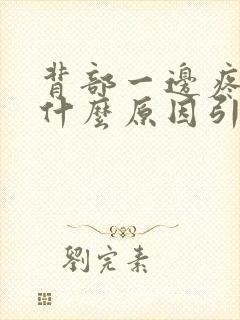 背部一邊疼
什麼原因引
劉完素